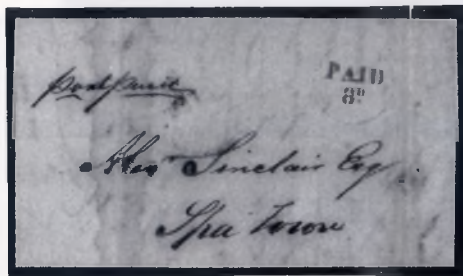 Post Paid
PAID
8D
Alex Sinclair Esq
Spa Town